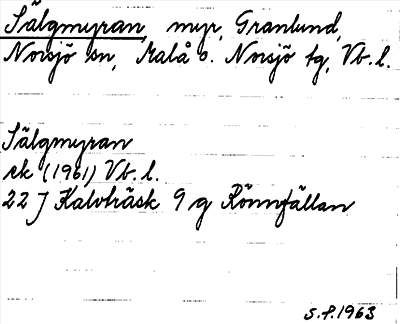 Sälgmyran, myr, Granlund,
Norsjö sn, Malå o. Norsjö tg, Vb. l.
Sälgmyran
ek (1961) Vb. l.
22 J Kalvträsk 9 g Rönnfällan
S.P. 1963